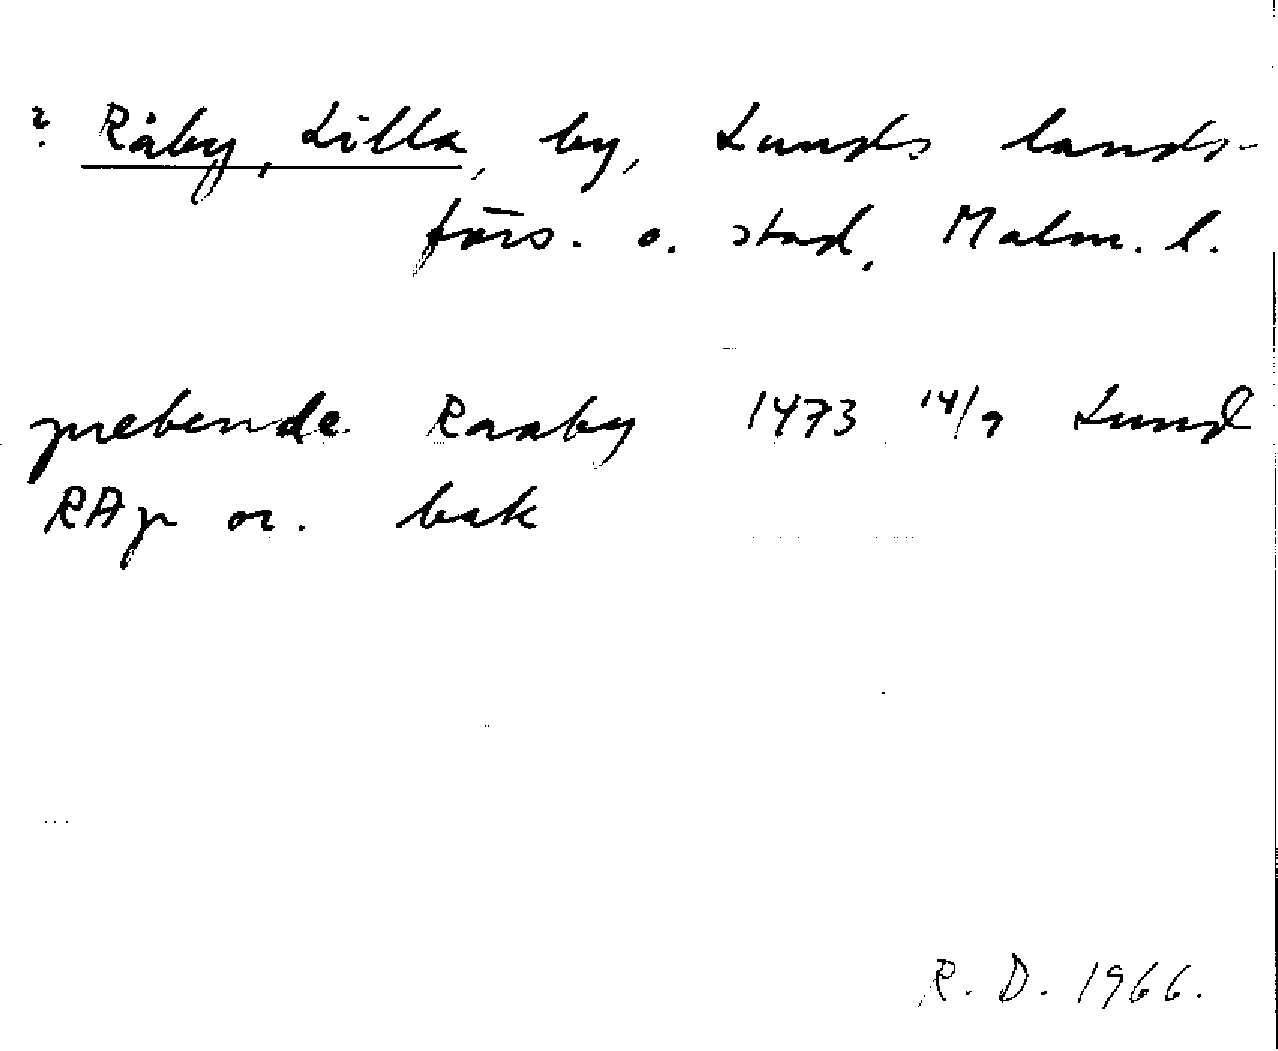 ? Råby, Lilla, by, Lunds lands-
förs. o. stad, Malm. l.
prebende Raaby 1473 14/9 Lund
RAp or. bak
R. D. 1966.